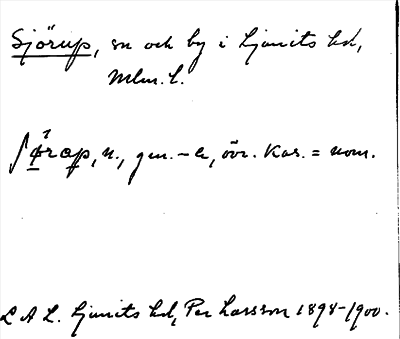 Sjörup, sn och by i Ljunits hd,
Mlm. l.
ʃørap, n., gen. -a, övr. kas. = nom.
L A L. Ljunits hd, Per Larsson 1898-1900.